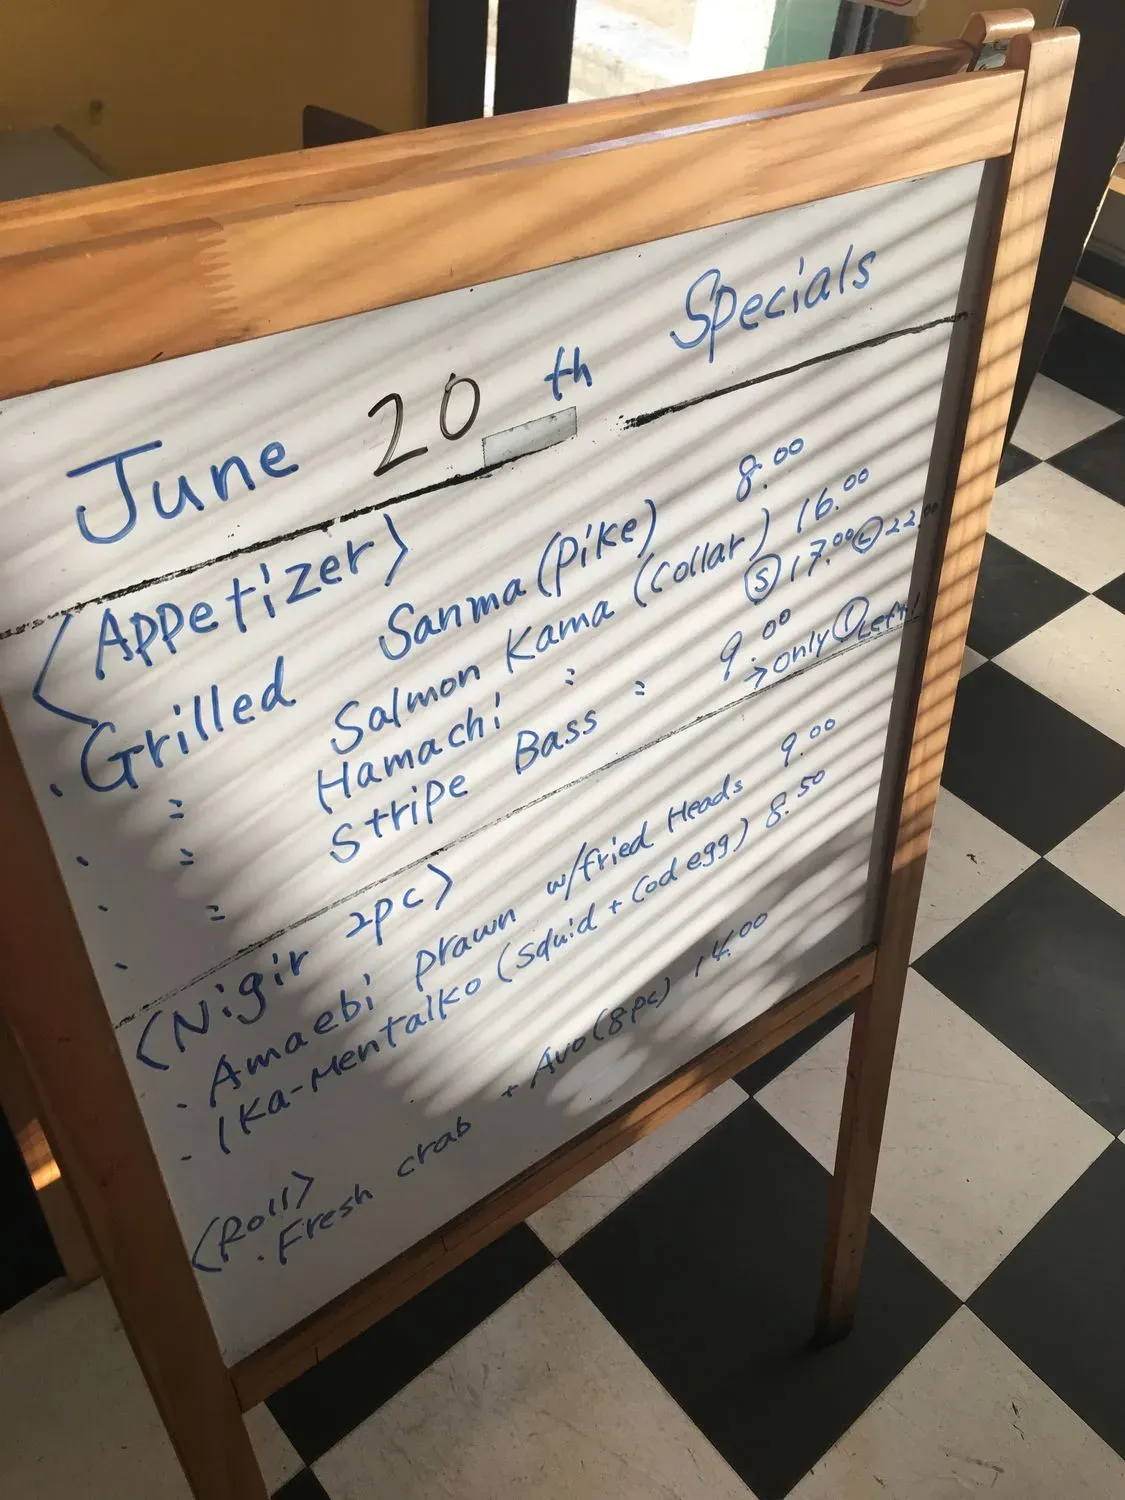 June 20th Specials
<Appetizer>
· Grilled Sanma (Pike) 8.00
· " Salmon Kama (collar) 16.00
· " Hamachi " Ⓢ 17.00 Ⓛ 22.00
· " Stripe Bass " 9.00
→ only ① Left!
<Nigir 2pc>
· Amaebi prawn w/fried Heads 9.00
· Ika-Mentaiko (squid + Cod egg) 8.50
<Roll>
· Fresh crab + Avo (8pc) 14.00